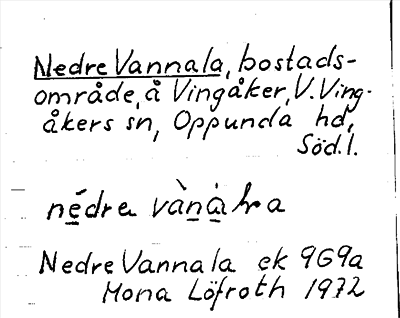 Nedre Vannala, bostads-
område, å Vingåker, V. Ving-
åkers sn, Oppunda hd,
Söd.l.
Nedre Vannala ek 9G9a
Mona Löfroth 1972